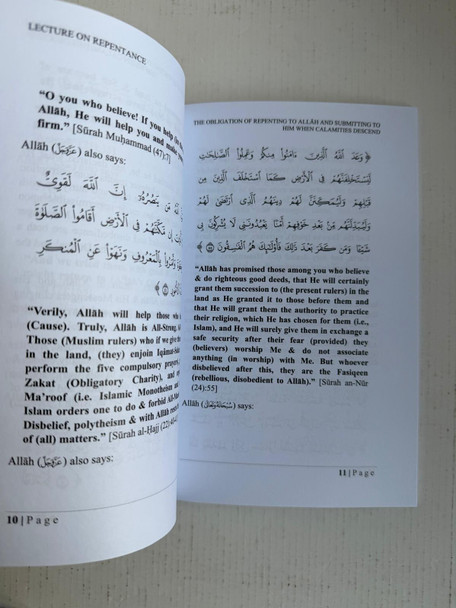 LECTURE ON REPENTANCE
“O you who believe! If you help the
Allāh, He will help you and make your
firm.” [Sūrah Muḥammad (47):7]
Allāh (عَزَّوَجَلَّ) also says:
مَن يَنصُرُهُۥٓ إِنَّ ٱللَّهَ لَقَوِىٌّ
إِن مَّكَّنَّٰهُمْ فِى ٱلْأَرْضِ أَقَامُوا۟ ٱلصَّلَوٰةَ
وَأَمَرُوا۟ بِٱلْمَعْرُوفِ وَنَهَوْا۟ عَنِ ٱلْمُنكَرِ
“Verily, Allāh will help those who
(Cause). Truly, Allāh is All-Strong,
Those (Muslim rulers) who if we give
in the land, (they) enjoin Iqamat-
perform the five compulsory prayers,
Zakat (Obligatory Charity), and
Ma’roof (i.e. Islamic Monotheism and
Islam orders one to do & forbid
Disbelief, polytheism & with Allāh rests
of (all) matters.” [Sūrah al-Ḥajj (22):
Allāh (عَزَّوَجَلَّ) also says:
10 | Page
THE OBLIGATION OF REPENTING TO ALLĀH AND SUBMITTING TO
HIM WHEN CALAMITIES DESCEND
﴿ وَعَدَ ٱللَّهُ ٱلَّذِينَ ءَامَنُوا۟ مِنكُمْ وَعَمِلُوا۟ ٱلصَّٰلِحَٰتِ
لَيَسْتَخْلِفَنَّهُمْ فِى ٱلْأَرْضِ كَمَا ٱسْتَخْلَفَ ٱلَّذِينَ مِن
قَبْلِهِمْ وَلَيُمَكِّنَنَّ لَهُمْ دِينَهُمُ ٱلَّذِى ٱرْتَضَىٰ لَهُمْ
وَلَيُبَدِّلَنَّهُم مِّنۢ بَعْدِ خَوْفِهِمْ أَمْنًا يَعْبُدُونَنِى لَا يُشْرِكُونَ بِى
شَيْـًٔا وَمَن كَفَرَ بَعْدَ ذَٰلِكَ فَأُو۟لَٰٓئِكَ هُمُ ٱلْفَٰسِقُونَ ﴾
“Allāh has promised those among you who believe
& do righteous good deeds, that He will certainly
grant them succession to (the present rulers) in the
land as He granted it to those before them and
that He will grant them the authority to practice
their religion, which He has chosen for them (i.e.,
Islam), and He will surely give them in exchange a
safe security after their fear (provided) they
(believers) worship Me & do not associate
anything (in worship) with Me. But whoever
disbelieved after this, they are the Fasiqeen
(rebellious, disobedient to Allāh).” [Sūrah an-Nūr
(24):55]
Allāh (سُبْحَانَهُ وَتَعَالَى) says:
11 | Page